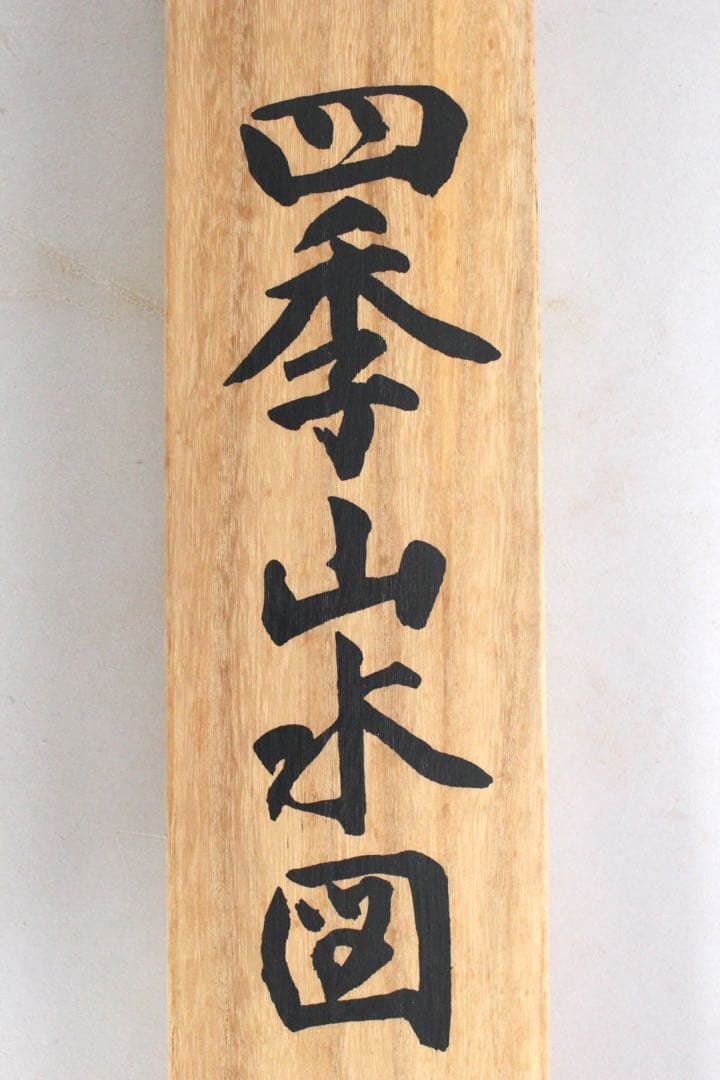 四季山水図